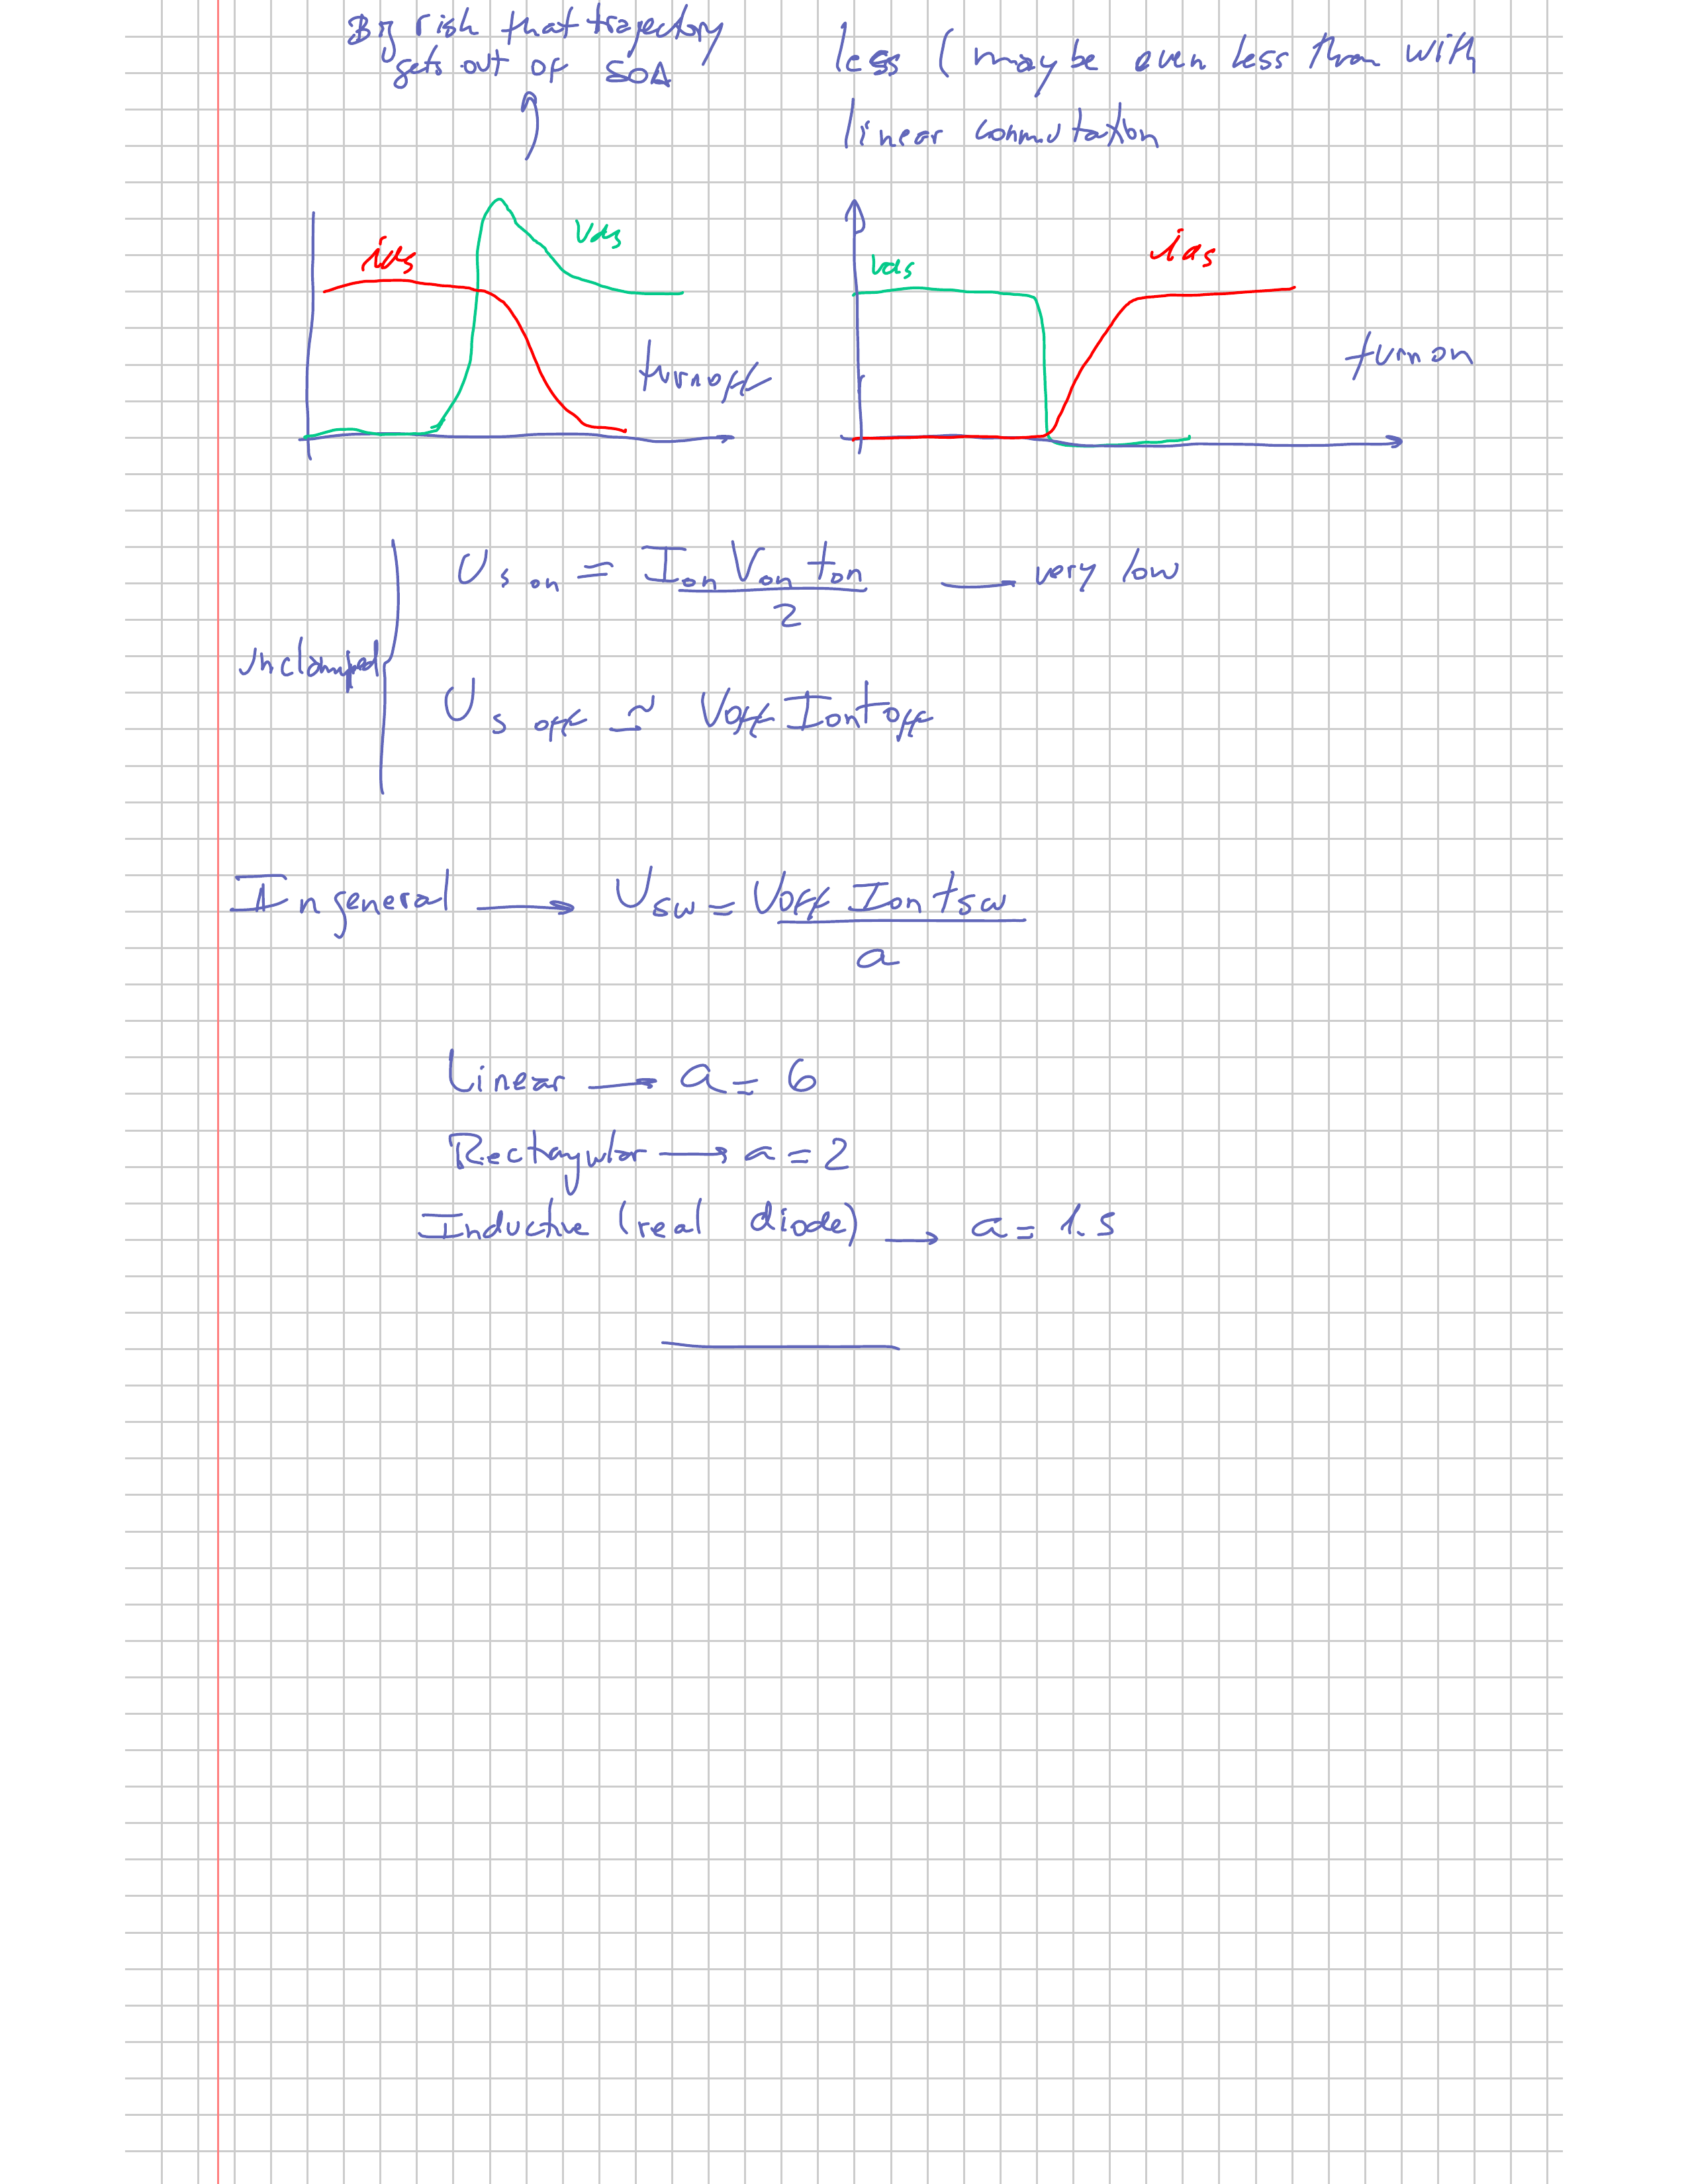 Big risk that trajectory
gets out of SOA
less (maybe even less than with
linear commutation
ids
vds
turnoff
vds
ids
turn on
unclamped
Us on = Ion Von ton / 2 — very low
Us off ≃ Voff Ion toff
In general → Usw = Voff Ion tsw / a
Linear → a = 6
Rectangular → a = 2
Inductive (real diode) → a = 1.5